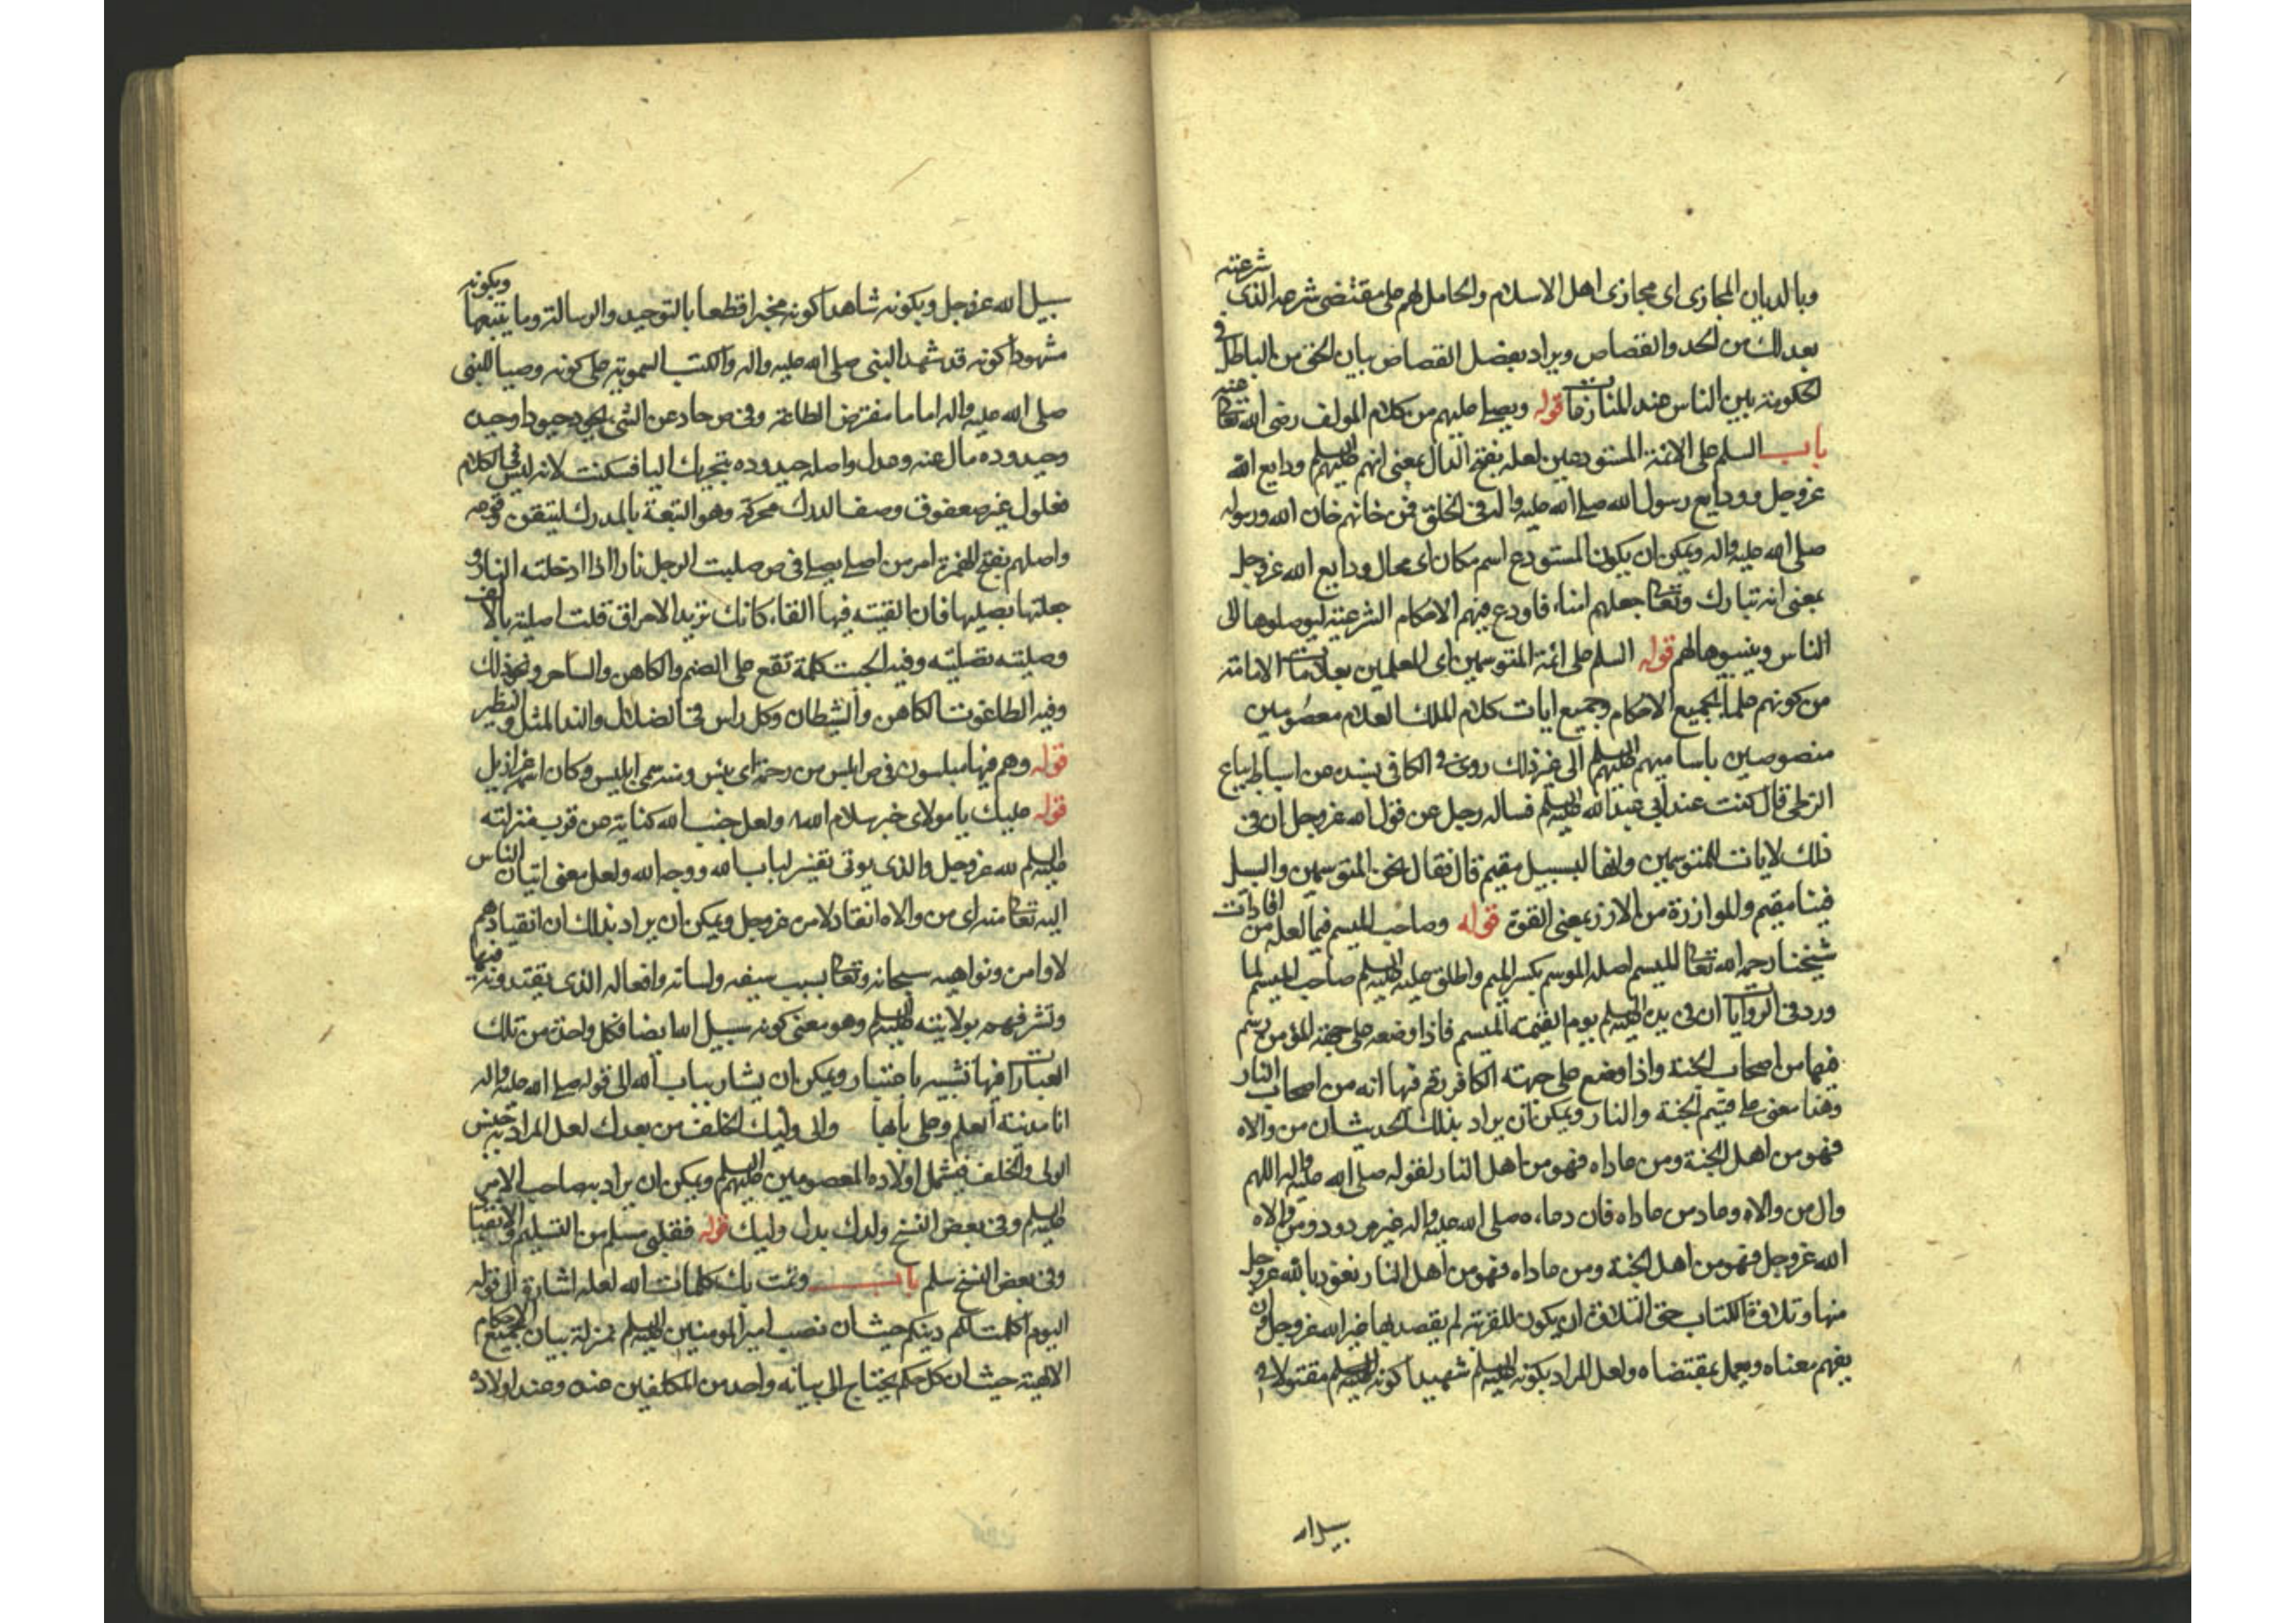 وبالديان المجازى اى مجازى اهل الاسلام والحامل لهم على مقتضى شرعه الذى شرعته
بعدلك من الحد والقصاص ويراد بفصل القصاص بيان الحق من الباطل فى
الحكومة بين الناس عند المنازعات قوله ويصلى عليهم من كلام المولف رضى الله تعالى عنه
باب السلم على الائمة المستودعين لعله بفتح الدال بمعنى انهم عليهم السلم ودايع الله
عزوجل وودايع رسول الله صلى الله عليه واله فى الخلق فمن خانهم خان الله ورسوله
صلى الله عليه واله ويمكن ان يكون المستودع اسم مكان اى محال ودايع الله عزوجل
بمعنى انه تبارك وتعالى جعلهم امناء فاودع فيهم الاحكام الشرعية ليوصلوها الى
الناس ويبينوها لهم قوله السلم على ائمة المتوسمين اى المعلمين بعلامات الامامة
من كونهم علماء بجميع الاحكام وجميع ايات كلام الملك العلام معصومين
منصوصين باساميهم عليهم السلم الى غير ذلك روى فى الكافى بسنده عن اسباط بياع
الزطى قال كنت عند ابى عبدالله عليه السلم فساله رجل عن قول الله عزوجل ان فى
ذلك لايات للمتوسمين وانها لبسبيل مقيم قال فقال نحن المتوسمين والسبل
فينا مقيم والموازرة من الازر بمعنى القوة قوله وصاحب الميسم فيما لعله من افادات
شيخنا رحمه الله تعالى الميسم اصله الموسم بكسر الميم واطلق عليه عليه السلم صاحب الميسم لما
ورد فى الروايات ان فى يده عليه السلم يوم القيمة الميسم فاذا وضعه على جبهة المؤمن رسم
فيها من اصحاب الجنة واذا وضع على جبهته الكافر رقم فيها انه من اصحاب النار
وهذا معنى على قسيم الجنة والنار ويمكن ان يراد بذلك الحديث ان من والاه
فهو من اهل الجنة ومن عاداه فهو من اهل النار لقوله صلى الله عليه واله اللهم
وال من والاه وعاد من عاداه فان دعاءه صلى الله عليه واله غير مردود ومن والاه
الله عزوجل فهو من اهل الجنة ومن عاداه فهو من اهل النار نعوذ بالله عزوجل
منها وتلاوة الكتاب حق التلاوة ان يكون للقربة لم يقصد بها غير الله عزوجل وان
يفهم معناه ويعمل بمقتضاه ولعل المراد بكونه عليه السلم شهيدا كونه عليه السلم مقتولا فى
سبيل الله
سبيل الله عزوجل وبكونه شاهدا كونه مخبرا قطعا بالتوحيد والرسالة وما يتبعها وبكونه
مشهودا كونه قد شهد النبى صلى الله عليه واله والكتب السموية على كونه وصيا للنبى
صلى الله عليه واله اماما مفترض الطاعة وفى ص حاد عن الشى يحيد حيودا وحيدة
وحيدودة مال عنه وعدل واصله حيدودة بتحريك اليا فسكنت لانه ليس فى الكلام
فعلول غير صعفوق وصفا الدرك محركة وهو التبعة بالمدرك ليتيقن وقوعه
واصلهم بفتح الهمزة امر من اصلى يصلى فى ص صليت الرجل نارا اذا ادخلته النار و
جعلتها يصليها فان القيته فيها القاء كانك تريد الاحراق قلت اصليته بالالف
وصليته تصلية وفيه الجبت كلمة تقع على الصنم والكاهن والساحر ونحو ذلك
وفيه الطاغوت الكاهن والشيطان وكل راس فى الضلال والند المثل والنظير
قوله وهم فيها مبلسون فى ص ابلس من رحمة اى يئس ومنه سمى ابليس وكان اسمه عزازيل
قوله عليك يا مولاى خير سلام الله ولعل جنب الله كناية عن قرب منزلته
عليه السلم لله عزوجل والذى يوتى تفسير لباب الله ووجه الله ولعل معنى اتيان الناس
اليه تعالى منه اى من والاه انقاد لامره عزوجل ويمكن ان يراد بذلك ان انقيادهم
لاوامره ونواهيه سبحانه وتعالى بسبب سيفه ولسانه وافعاله الذى يقتدونه فيها
وتشرفهم بولايته عليه السلم وهو معنى كونه سبيل الله ايضا فكل واحدة من تلك
العبارات فيها تشبيه باعتبار ويمكن ان يشار بباب الله الى قوله صلى الله عليه واله
انا مدينة العلم وعلى بابها والى وليك الخلف من بعدك لعل المراد به جنس
الولى والخلف فيشمل اولاده المعصومين عليهم السلم ويمكن ان يراد به صاحب الامر
عليه السلم وفى بعض النسخ ولدك بدل وليك قوله فقلبى مسلم من التسليم والانقياد
وفى بعض النسخ سلم باب وتمت بك كلمات الله لعله اشارة الى قوله
اليوم اكملت لكم دينكم حيث ان نصب امير المومنين عليه السلم بمنزلة بيان جميع الاحكام
الالهية حيث ان كل حكم يحتاج الى بيانه واحد من المكلفين عنده وعند اولاده